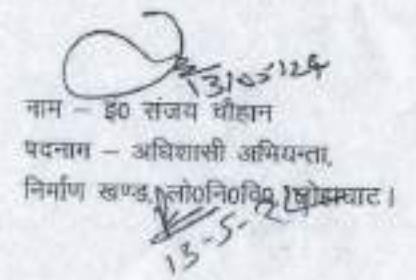 13/05/24
नाम – इ0 संजय चौहान
पदनाम – अधिशासी अभियन्ता,
निर्माण खण्ड, लो0नि0वि0, लोहाघाट।
13-5-24